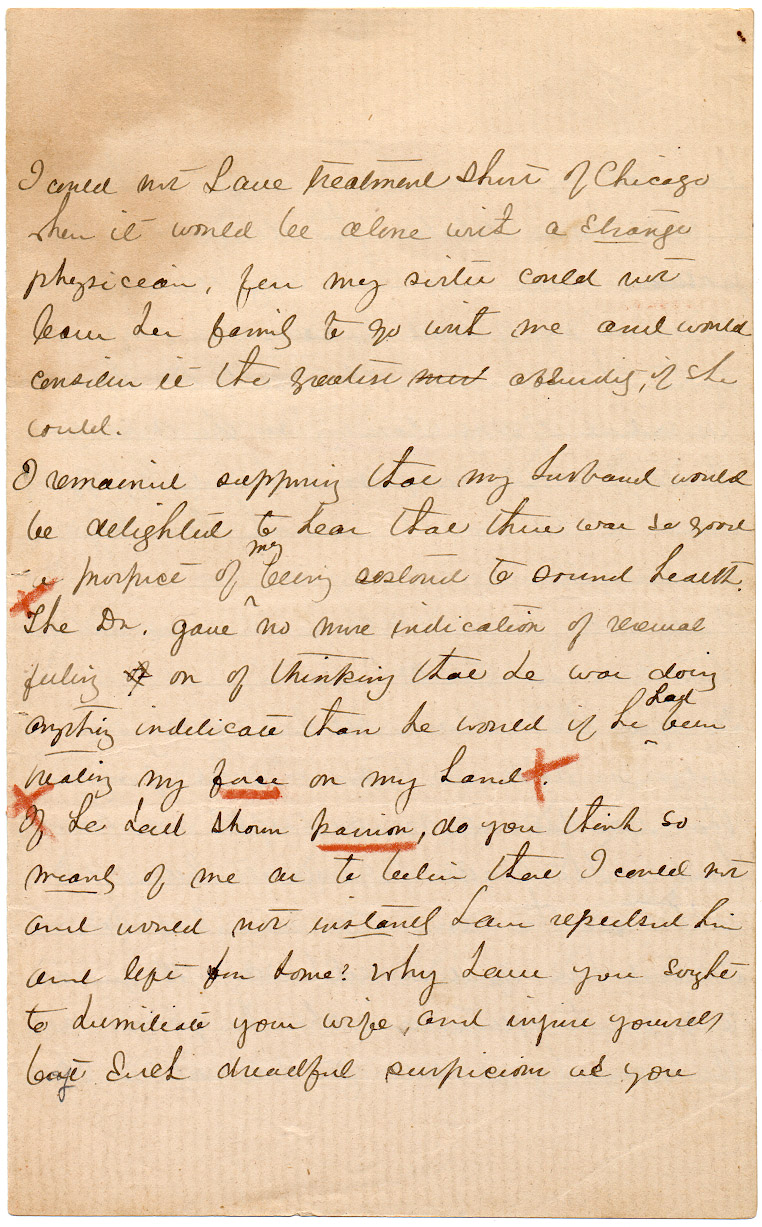 I could not have treatment short of Chicago
when it would be alone with a strange
physicean, for my sister could not
leave her family to go with me and would
consider it the greatest absurdity, if she
could.
I remained supposing that my husband would
be delighted to hear that there was so good
a prospect of my being restored to sound health.
The Dr. gave no more indication of sexual
feeling or of thinking that he was doing
anything indelicate than he would if he had been
treating my face or my hand.
If he had shown passion, do you think so
meanly of me as to believe that I could not
and would not instantly have repulsed him
and left for home? Why have you sought
to humiliate your wife, and injure yourself
by such dreadful suspicions as you